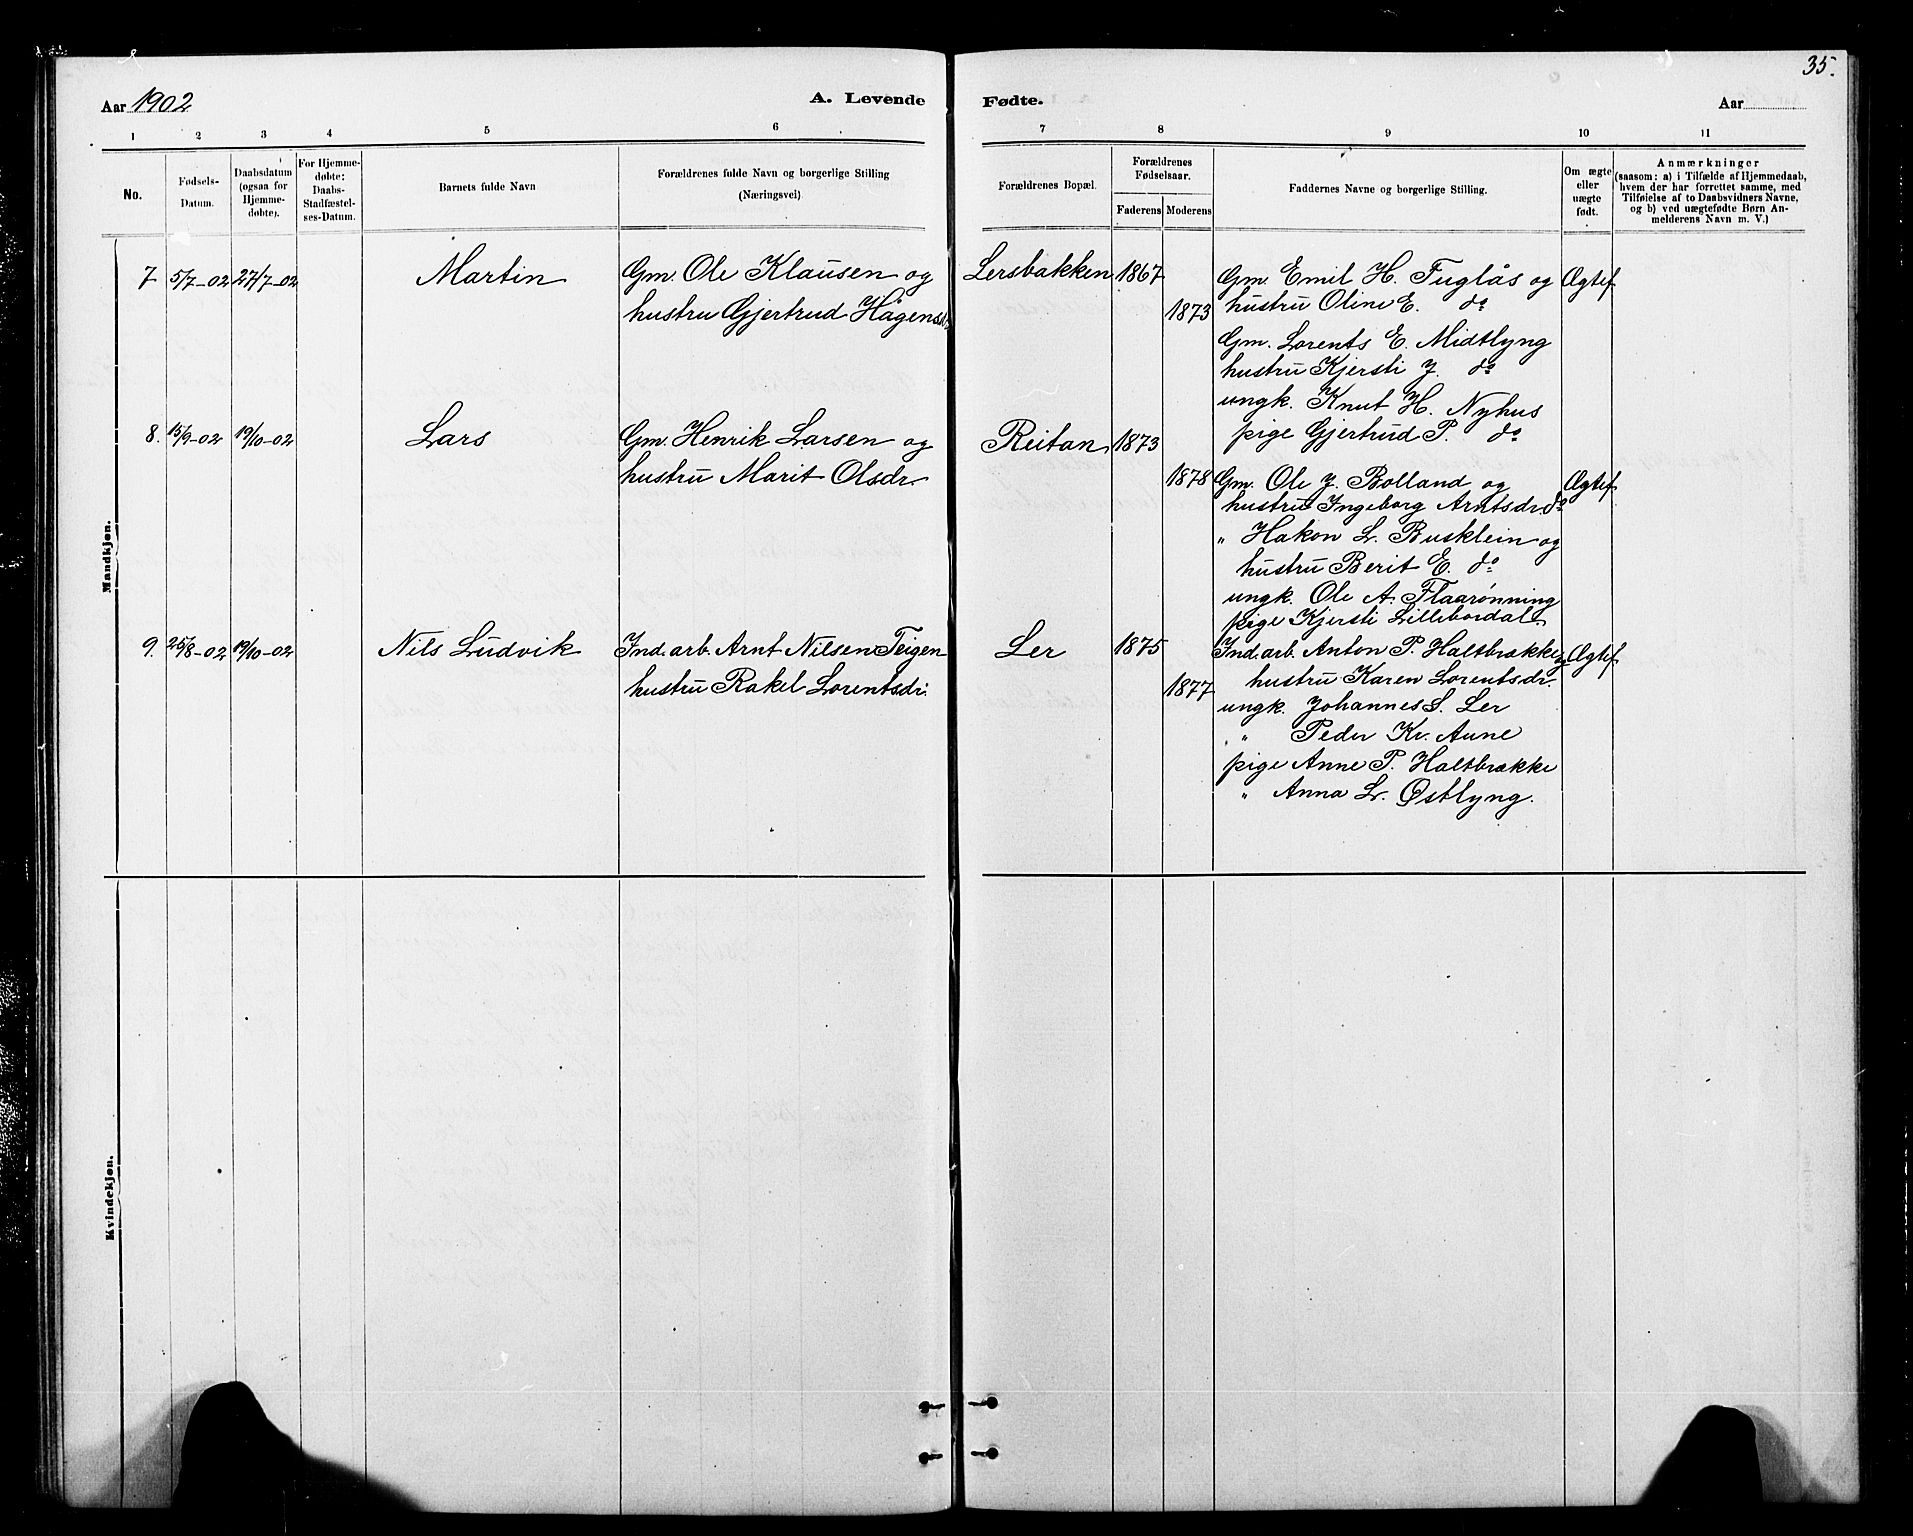 35.
Aar 1902
A. Levende
Fødte.
Aar
1 2 3 4 5 6 7 8 9 10 11
No.
Fødsels-
Datum.
Daabsdatum
(ogsaa for
Hjemme-
døbte).
For Hjemme-
døbte:
Daabs-
Stadfæstel-
ses-Datum.
Barnets fulde Navn
Forældrenes fulde Navn og borgerlige Stilling
(Næringsvei)
Forældrenes Bopæl.
Forældrenes
Fødselsaar.
Faderens
Moderens
Faddernes Navne og borgerlige Stilling.
Om ægte
eller
uægte
født.
Anmærkninger
(saasom: a) i Tilfælde af Hjemmedaab,
hvem der har forrettet samme, med
Tilføielse af to Daabsvidners Navne,
og b) ved uægtefødte Børn An-
melderens Navn m. V.)
Mandkjøn.
7 5/7-02 27/7-02 Martin
Gm. Ole Klausen og
hustru Gjertrud Hågensdr
Lersbakken 1867
1873
Gm. Emil H. Fuglås og
hustru Oline E. do
Gm. Lorents E. Midtlyng
hustru Kjersti J. do
ungk. Knut H. Nyhus
pige Gjertrud P. do
Ægtef
8. 15/9-02 19/10-02 Lars
Gm. Henrik Larsen og
hustru Marit Olsdr.
Reitan 1873
1878
Gm. Ole J. Bolland og
hustru Ingeborg Arntsdr. do
" Hakon L. Busklein og
hustru Berit E. do
ungk. Ole A. Flaarønning
pige Kjersti Lillebordal
Ægtef
9. 25/8-02 19/10-02 Nils Ludvik
Ind. arb. Arnt Nilsen Teigen
hustru Rakel Lorentsdr.
Ler 1875
1877
Ind. arb. Anton P. Haltbrække og
hustru Karen Lorentsdr.
ungk. Johannes S. Ler
" Peder Kr. Aune
pige Anne P. Haltbrække
" Anna L. Østlyng.
Ægtef
Kvindekjøn.